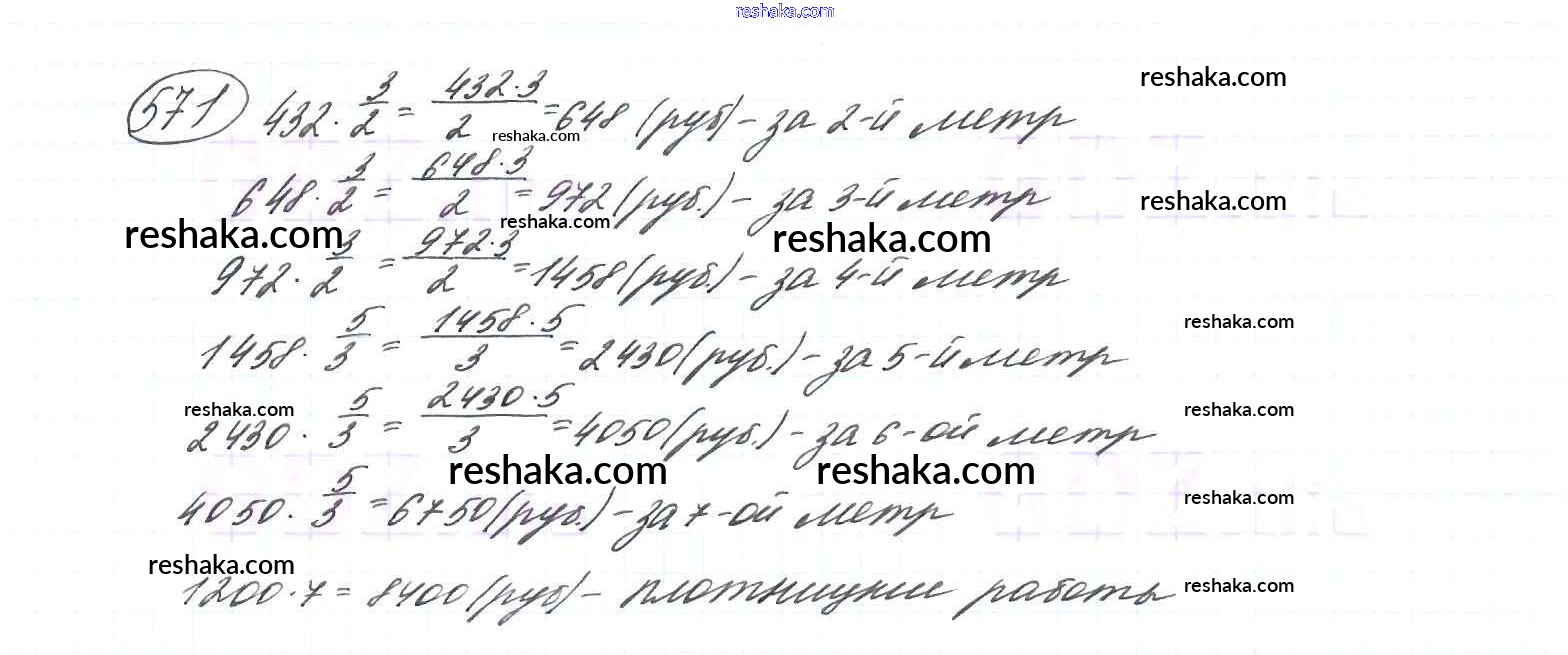 reshaka.com
571 432 · 3/2 = 432·3/2 = 648 (руб) - за 2-й метр reshaka.com
reshaka.com
648 · 3/2 = 648·3/2 = 972 (руб.) - за 3-й метр reshaka.com
reshaka.com reshaka.com reshaka.com
972 · 3/2 = 972·3/2 = 1458 (руб.) - за 4-й метр
reshaka.com
1458 · 5/3 = 1458·5/3 = 2430 (руб.) - за 5-й метр
reshaka.com reshaka.com
2430 · 5/3 = 2430·5/3 = 4050 (руб.) - за 6-ой метр
reshaka.com reshaka.com
4050 · 5/3 = 6750 (руб.) - за 7-ой метр reshaka.com
reshaka.com
1200·7 = 8400 (руб) - плотницкие работы reshaka.com